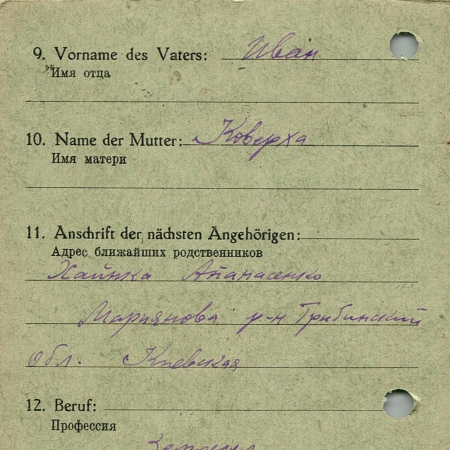 9. Vorname des Vaters: Иван
Имя отца
10. Name der Mutter: Коверха
Имя матери
11. Anschrift der nächsten Angehörigen:
Адрес ближайших родственников
Апанасенко
Мариянова р-н Грибинский
обл. Киевская
12. Beruf:
Профессия